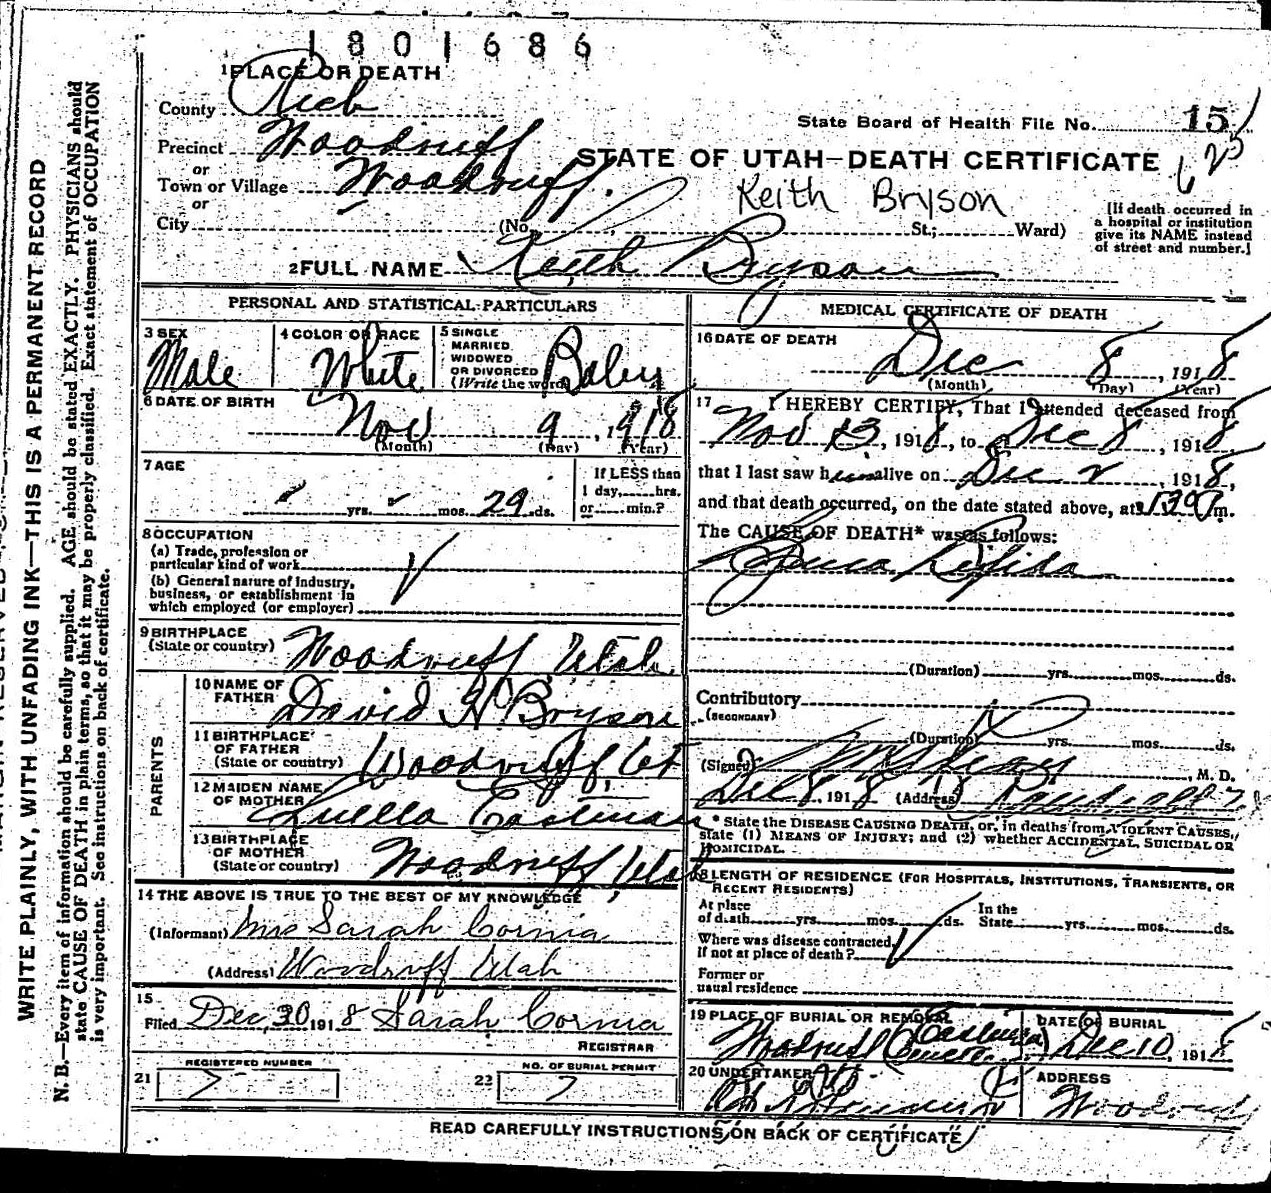 1801686
1 PLACE OF DEATH
County Rich
State Board of Health File No. 15
Precinct Woodruff
or
STATE OF UTAH—DEATH CERTIFICATE
Town or Village Woodruff.
or
Keith Bryson
City (No. St.; Ward)
[If death occurred in
a hospital or institution
give its NAME instead
of street and number.]
2 FULL NAME Keith Bryson
PERSONAL AND STATISTICAL PARTICULARS
3 SEX Male
4 COLOR OR RACE White
5 SINGLE
MARRIED
WIDOWED
OR DIVORCED
(Write the word) Baby
6 DATE OF BIRTH
Nov 9, 1918
(Month) (Day) (Year)
7 AGE
yrs. mos. 29 ds.
If LESS than
1 day, hrs.
or min.?
8 OCCUPATION
(a) Trade, profession or
particular kind of work
(b) General nature of industry,
business, or establishment in
which employed (or employer)
9 BIRTHPLACE
(State or country) Woodruff Utah
PARENTS
10 NAME OF
FATHER David H Bryson
11 BIRTHPLACE
OF FATHER
(State or country) Woodruff, Ut
12 MAIDEN NAME
OF MOTHER Luella Eastman
13 BIRTHPLACE
OF MOTHER
(State or country) Woodruff, Utah
14 THE ABOVE IS TRUE TO THE BEST OF MY KNOWLEDGE
(Informant) Mrs Sarah Cornia
(Address) Woodruff Utah
15
Filed Dec, 30 1918 Sarah Cornia
REGISTRAR
REGISTERED NUMBER
21
NO. OF BURIAL PERMIT
22
MEDICAL CERTIFICATE OF DEATH
16 DATE OF DEATH
Dec 8, 1918
(Month) (Day) (Year)
17 I HEREBY CERTIFY, That I attended deceased from
Nov 13, 1918, to Dec 8, 1918
that I last saw him alive on Dec 2, 1918,
and that death occurred, on the date stated above, at m.
The CAUSE OF DEATH* was as follows:
Spina Bifida
(Duration) yrs. mos. ds.
Contributory
(SECONDARY)
(Duration) yrs. mos. ds.
(Signed) , M. D.
Dec 8, 1918 (Address) Randolph
* State the DISEASE CAUSING DEATH, or, in deaths from VIOLENT CAUSES,
state (1) MEANS OF INJURY; and (2) whether ACCIDENTAL, SUICIDAL OR
HOMICIDAL.
18 LENGTH OF RESIDENCE (FOR HOSPITALS, INSTITUTIONS, TRANSIENTS, OR
RECENT RESIDENTS)
At place
of death yrs. mos. ds.
In the
State yrs. mos. ds.
Where was disease contracted,
if not at place of death?
Former or
usual residence
19 PLACE OF BURIAL OR REMOVAL
Woodruff
DATE OF BURIAL
Dec 10, 1918
20 UNDERTAKER
ADDRESS
Woodruff
READ CAREFULLY INSTRUCTIONS ON BACK OF CERTIFICATE
WRITE PLAINLY, WITH UNFADING INK—THIS IS A PERMANENT RECORD
N. B.—Every item of information should be carefully supplied. AGE should be stated EXACTLY. PHYSICIANS should
state CAUSE OF DEATH in plain terms, so that it may be properly classified. Exact statement of OCCUPATION
is very important. See instructions on back of certificate.